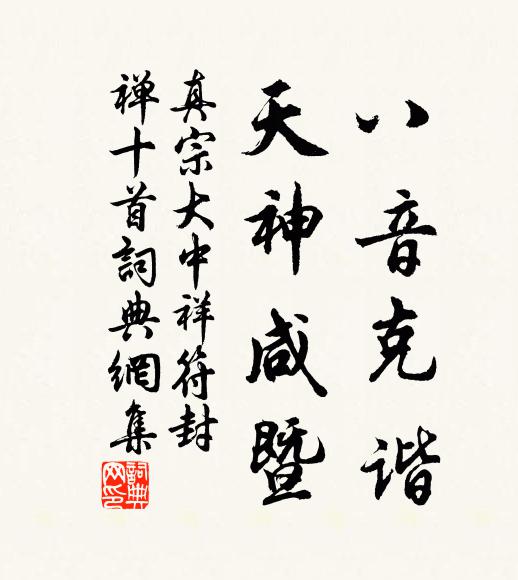 八音克谐
天神咸暨
真宗大中祥符封
禅十首詞典網集
詞典網印